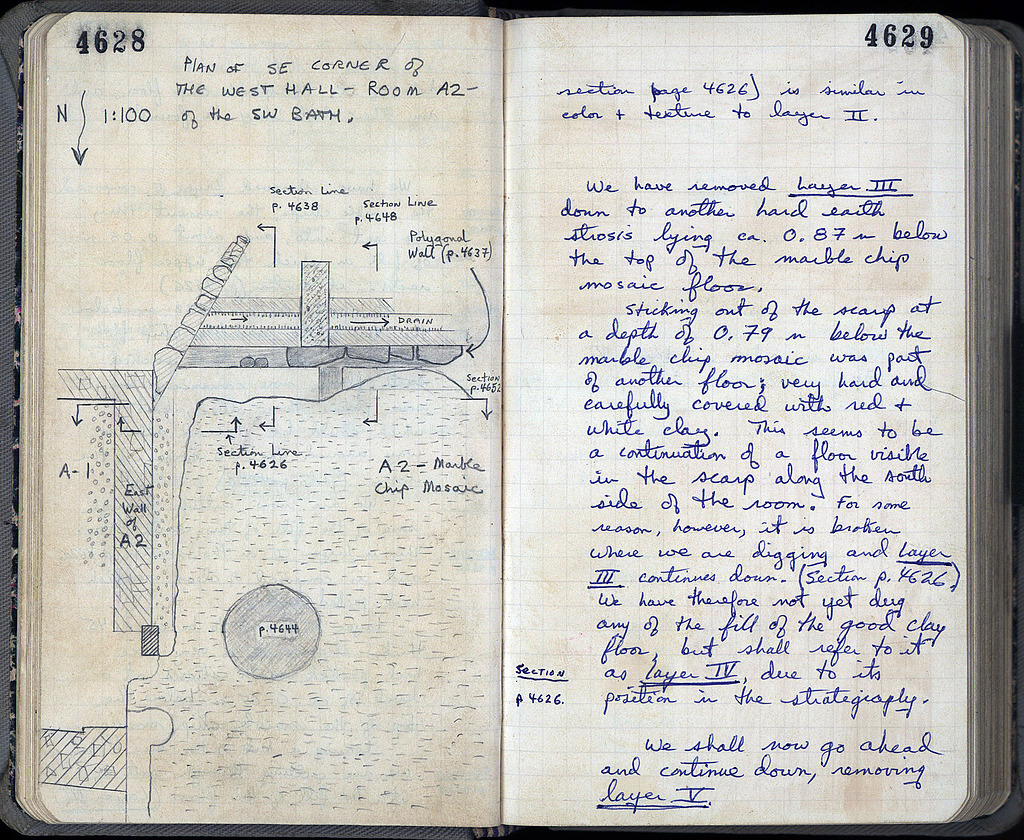 4628
PLAN OF SE CORNER of
THE WEST HALL - ROOM A2 -
of the SW BATH.
N
1:100
Section Line
p. 4638
Section Line
p. 4648
Polygonal
Wall (p.4637)
DRAIN
Section
p.4652
Section Line
p. 4626
A-1
East
Wall
of
A2
A2 - Marble
Chip Mosaic
p.4644
4629
section page 4626) is similar in
color + texture to layer II.
We have removed Layer III
down to another hard earth
strosis lying ca. 0.87 m below
the top of the marble chip
mosaic floor.
Sticking out of the scarp at
a depth of 0.79 m below the
marble chip mosaic was part
of another floor; very hard and
carefully covered with red +
white clay. This seems to be
a continuation of a floor visible
in the scarp along the south
side of the room. For some
reason, however, it is broken
where we are digging and layer
III continues down. (Section p. 4626.)
We have therefore not yet dug
any of the fill of the good clay
floor, but shall refer to it
as layer IV, due to its
position in the stratigraphy.
Section
p 4626.
We shall now go ahead
and continue down, removing
layer V.